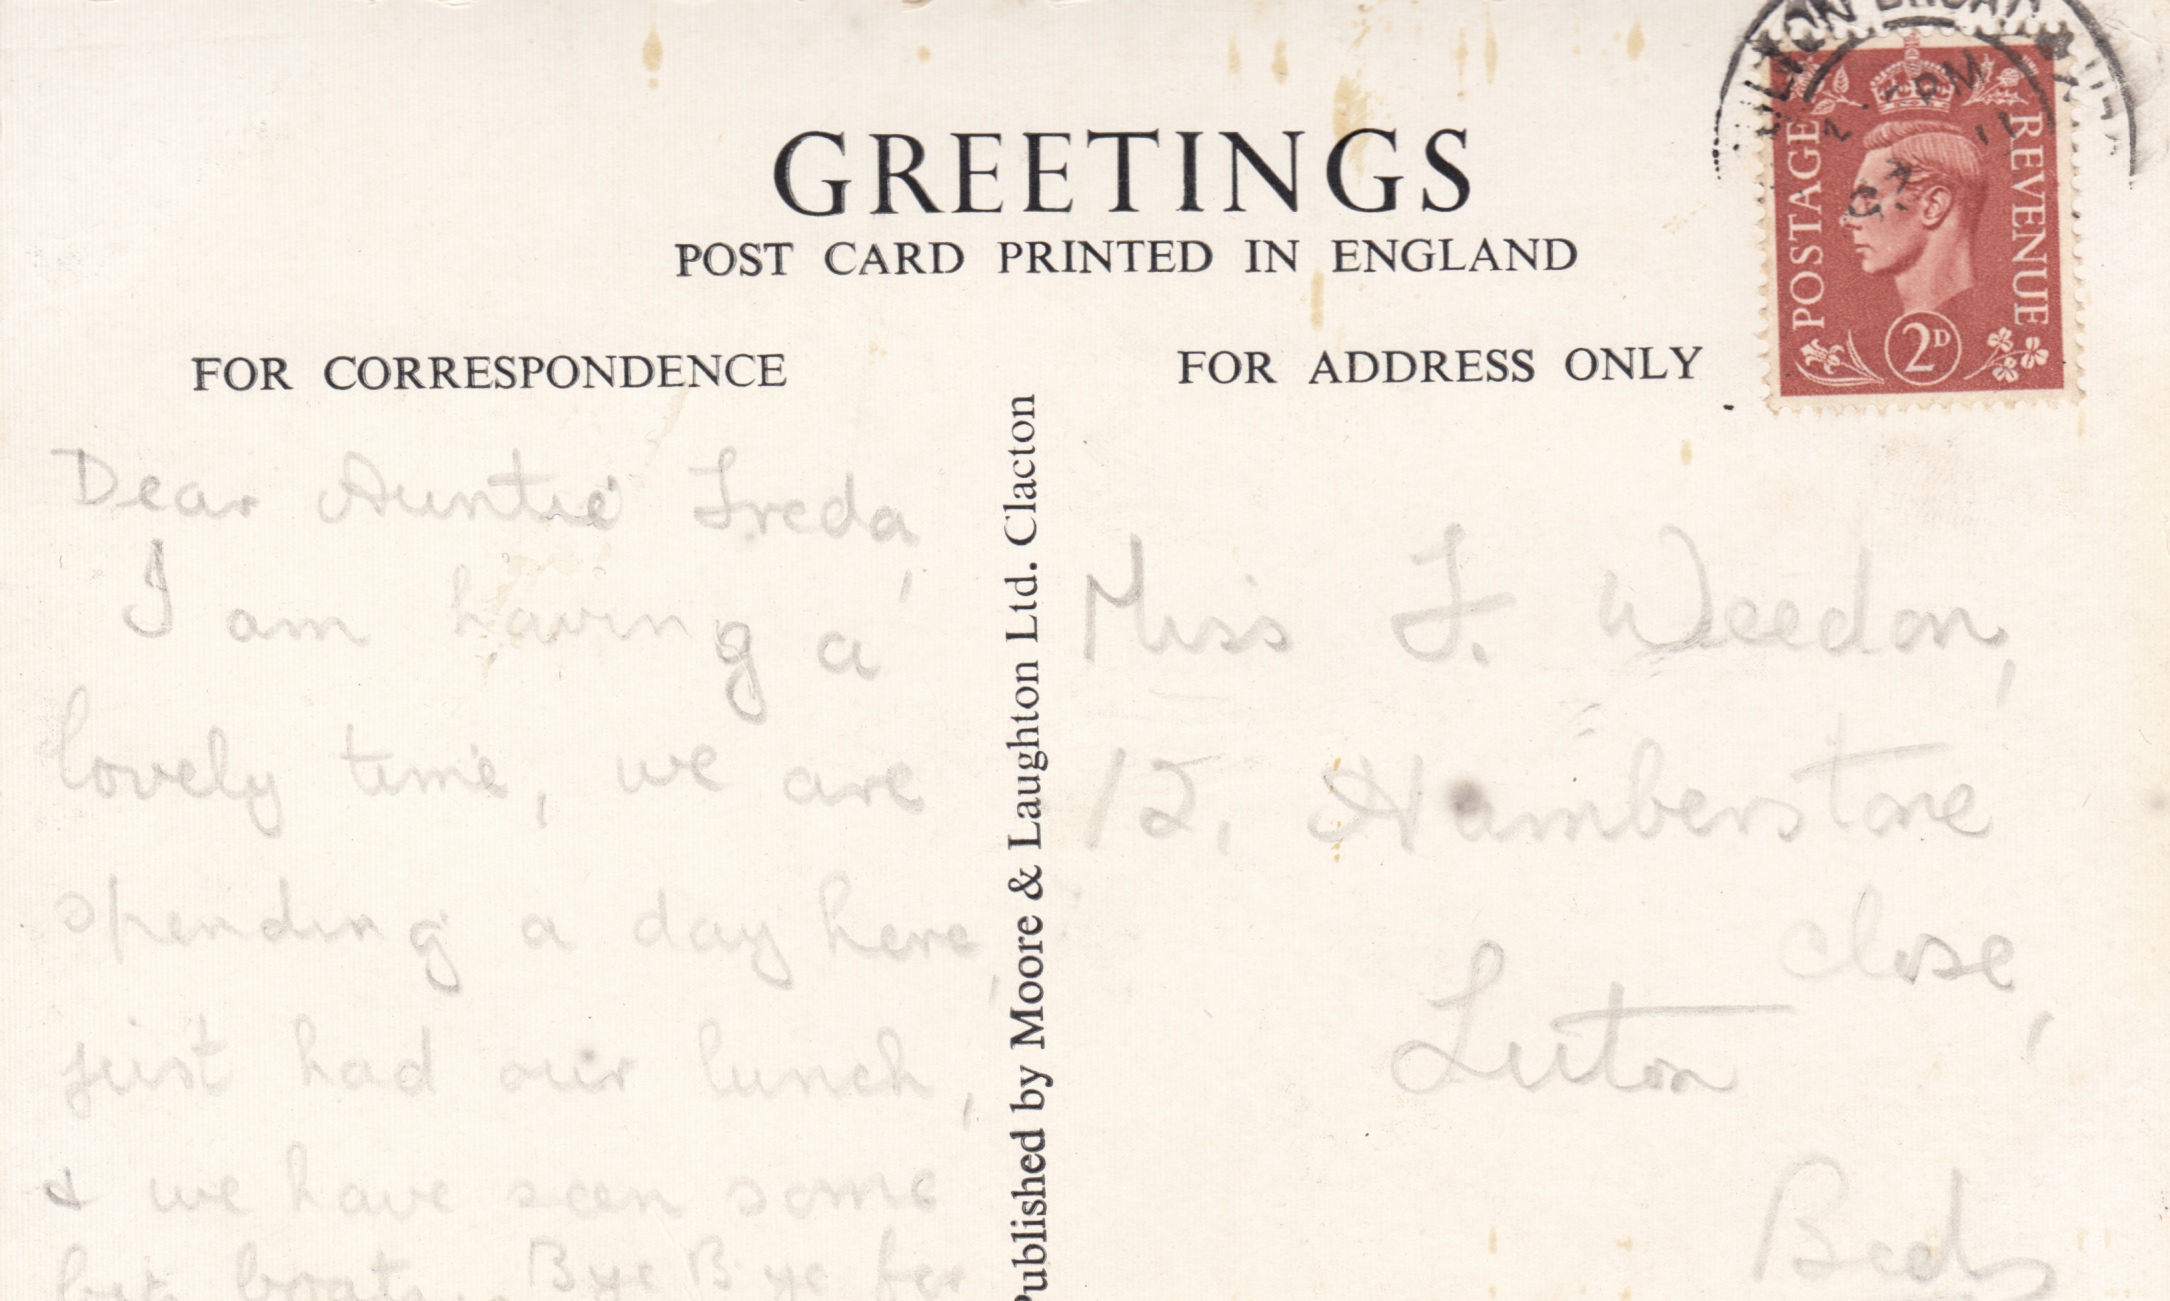 GREETINGS
POST CARD PRINTED IN ENGLAND
FOR CORRESPONDENCE
FOR ADDRESS ONLY
POSTAGE
REVENUE
2D
PM
Dear Auntie Freda,
I am having a
lovely time, we are
spending a day here,
just had our lunch,
& we have seen some
boats. Bye Bye for
Published by Moore & Laughton Ltd. Clacton
Miss F. Weedon,
12, Humberstone
close,
Luton
Beds